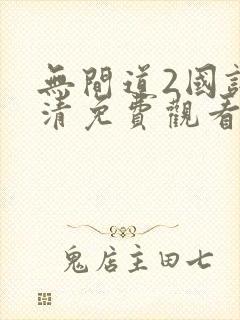 無間道2國
清免費觀看
鬼店主田七